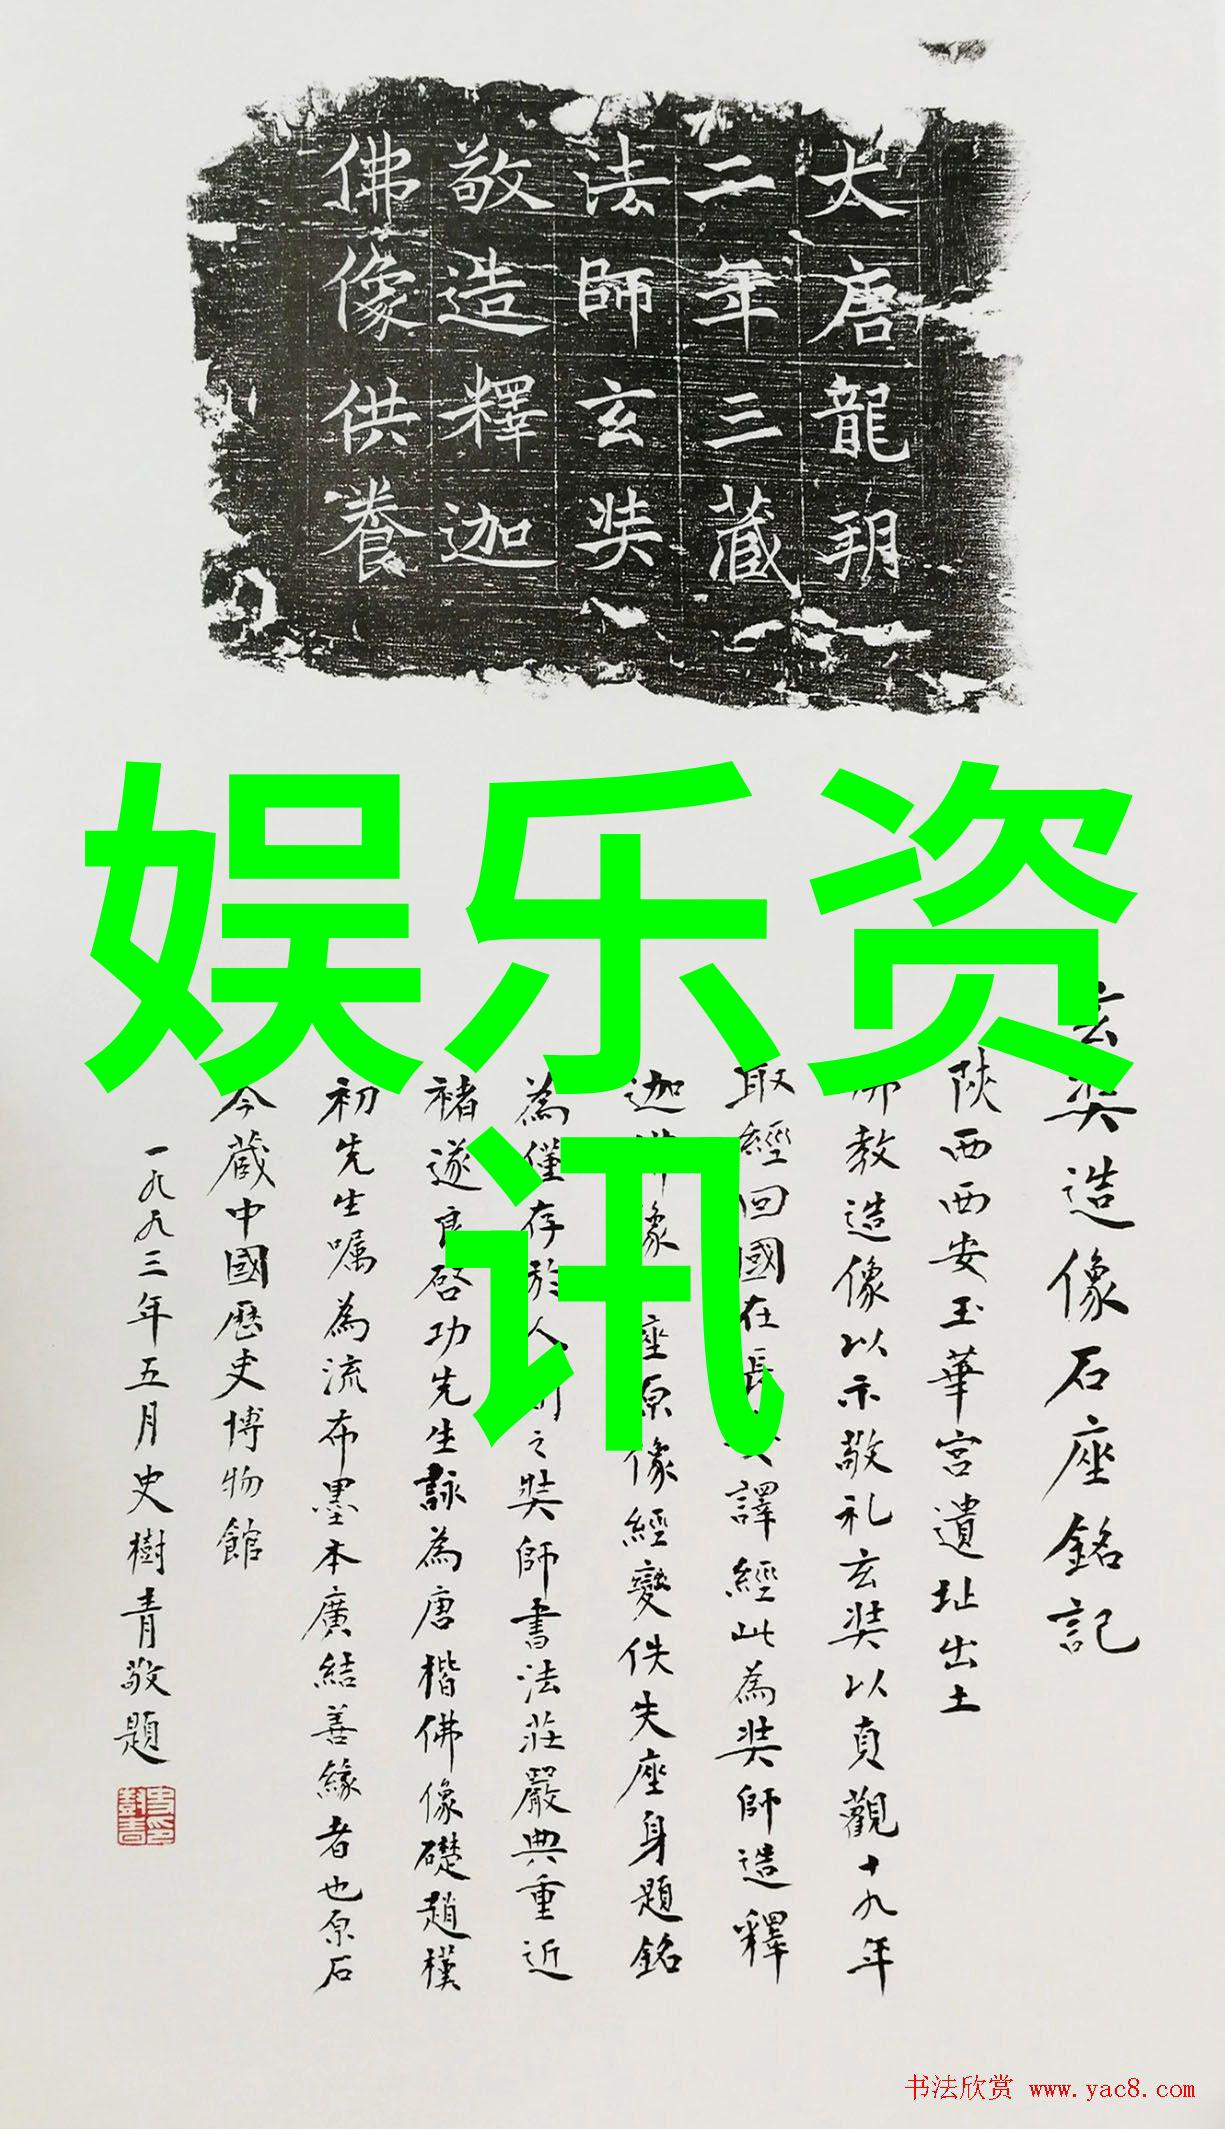 大唐龍朔
二年三藏
法師玄奘
敬造釋迦
佛像供養
娱乐资
讯
玄奘造像石座銘記
陝西西安玉華宮遺址出土
佛教造像以示敬礼玄奘以貞觀十九年
取經回國在長安譯經此為奘師造釋
迦佛像座原像經變佚失座身題銘
為僅存於人間之奘師書法莊嚴典重近
褚遂良启功先生詠為唐楷佛像礎趙樸
初先生嘱為流布墨本廣結善緣者也原石
今藏中國歷史博物館
一九九三年五月史樹青敬題
书法欣赏 www.yac8.com